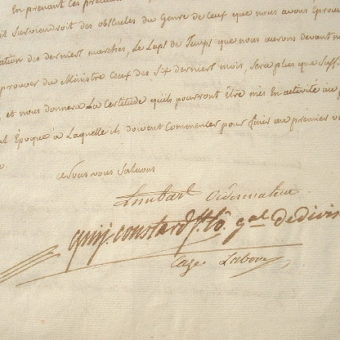 En prenant ces
il Surviendroit des obstacles du Genre de ceux que nous avons Eprouv
ation des derniers marchés, Le Laps de Temps que nous aurons devant n
prouver du Ministre Ceux des Six derniers mois Sera plus que Suff
et nous donnera La Certitude qu'ils pourront Être mis En activité au
al Epoque à Laquelle ils doivent Commencer pour finir au premier
Nous vous Saluons
Lambert Ordonnateur
gal de divis
Caze Labove